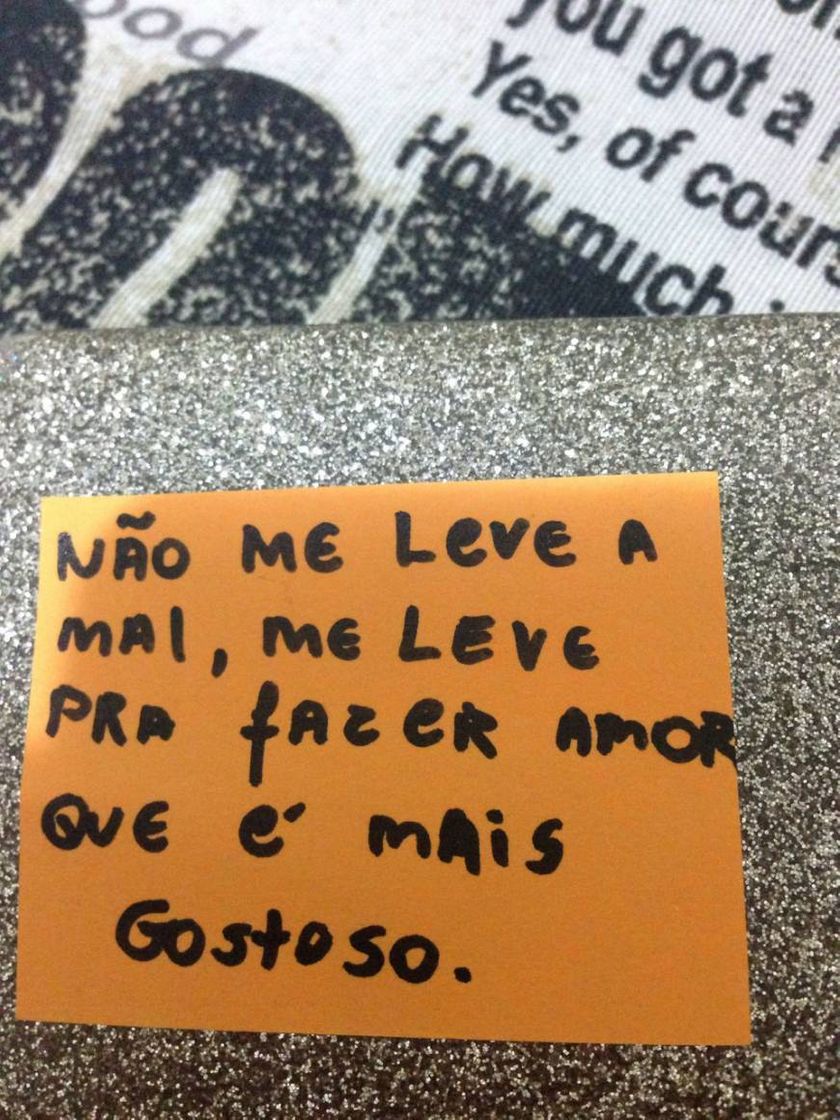 ood
you got a
Yes, of cours
How much
NÃO ME LEVE A
MAl, ME LEVE
PRA fAZER AMOR
QUE é MAiS
GOStOSO.